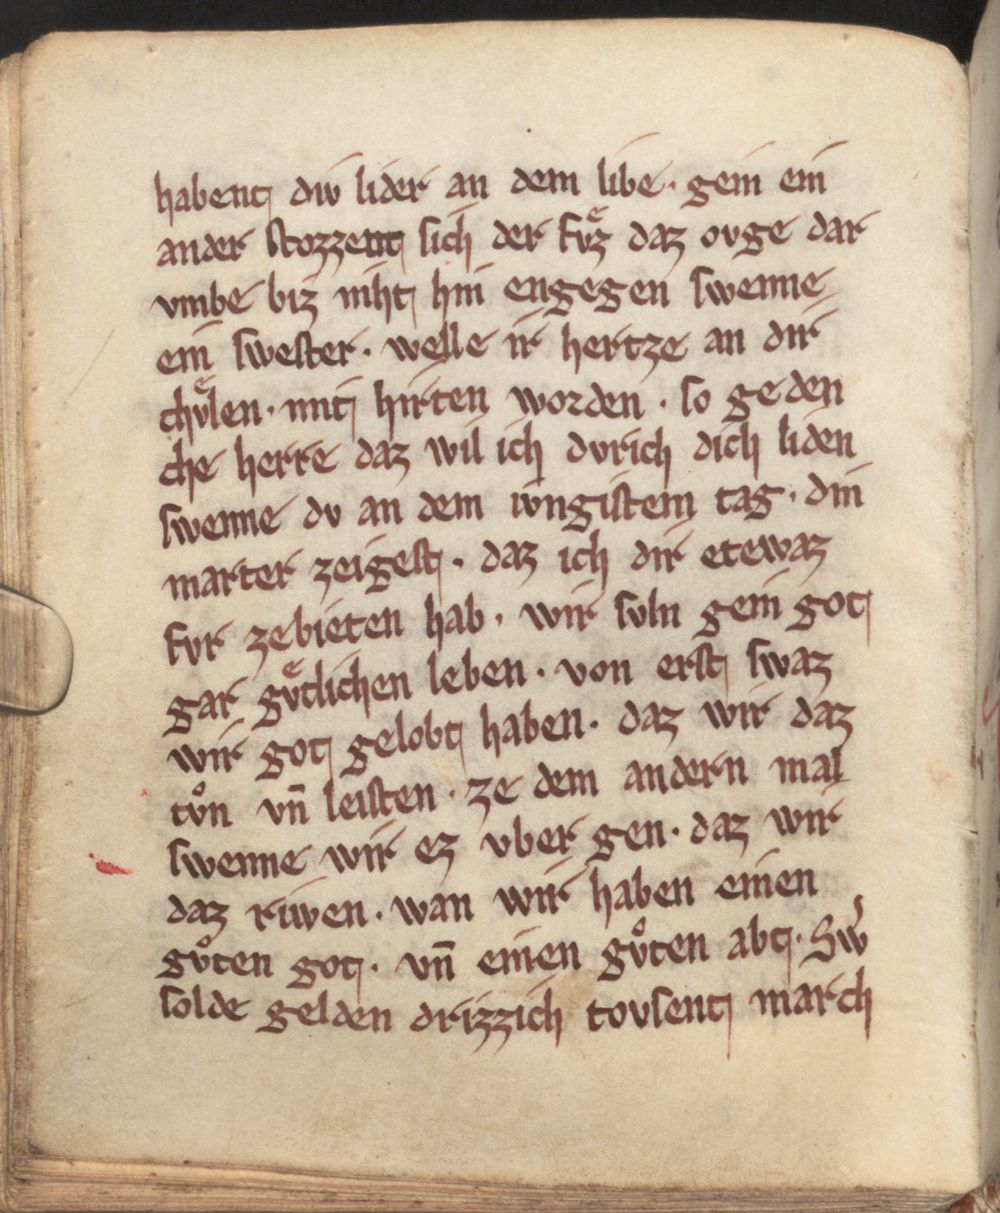 habent div lider an dem libe · gein ein
ander stozzent sich der fvͤz daz ovge dar
vmbe biz niht hin engegen swenne
ein swester · welle ir hertze an dir
chvͤlen · mit hirten worden · so geden
che herre daz wil ich dvrich dich liden
swenne dv an dem ivngistem tag · din
marter zeigest · daz ich dir etewaz
fvr zebieten hab · wir svln gein got
gar gvͤtlichen leben · von erst swaz
wir got gelobt haben · daz wir daz
tvͦn vn̄ leisten · ze dem andern mal
swenne wir ez vber gen · daz wir
daz riwen · wan wir haben einen
gvͦten got · vn̄ einen gvͦten abt · Sw̓
solde gelden drizzich tovsent march